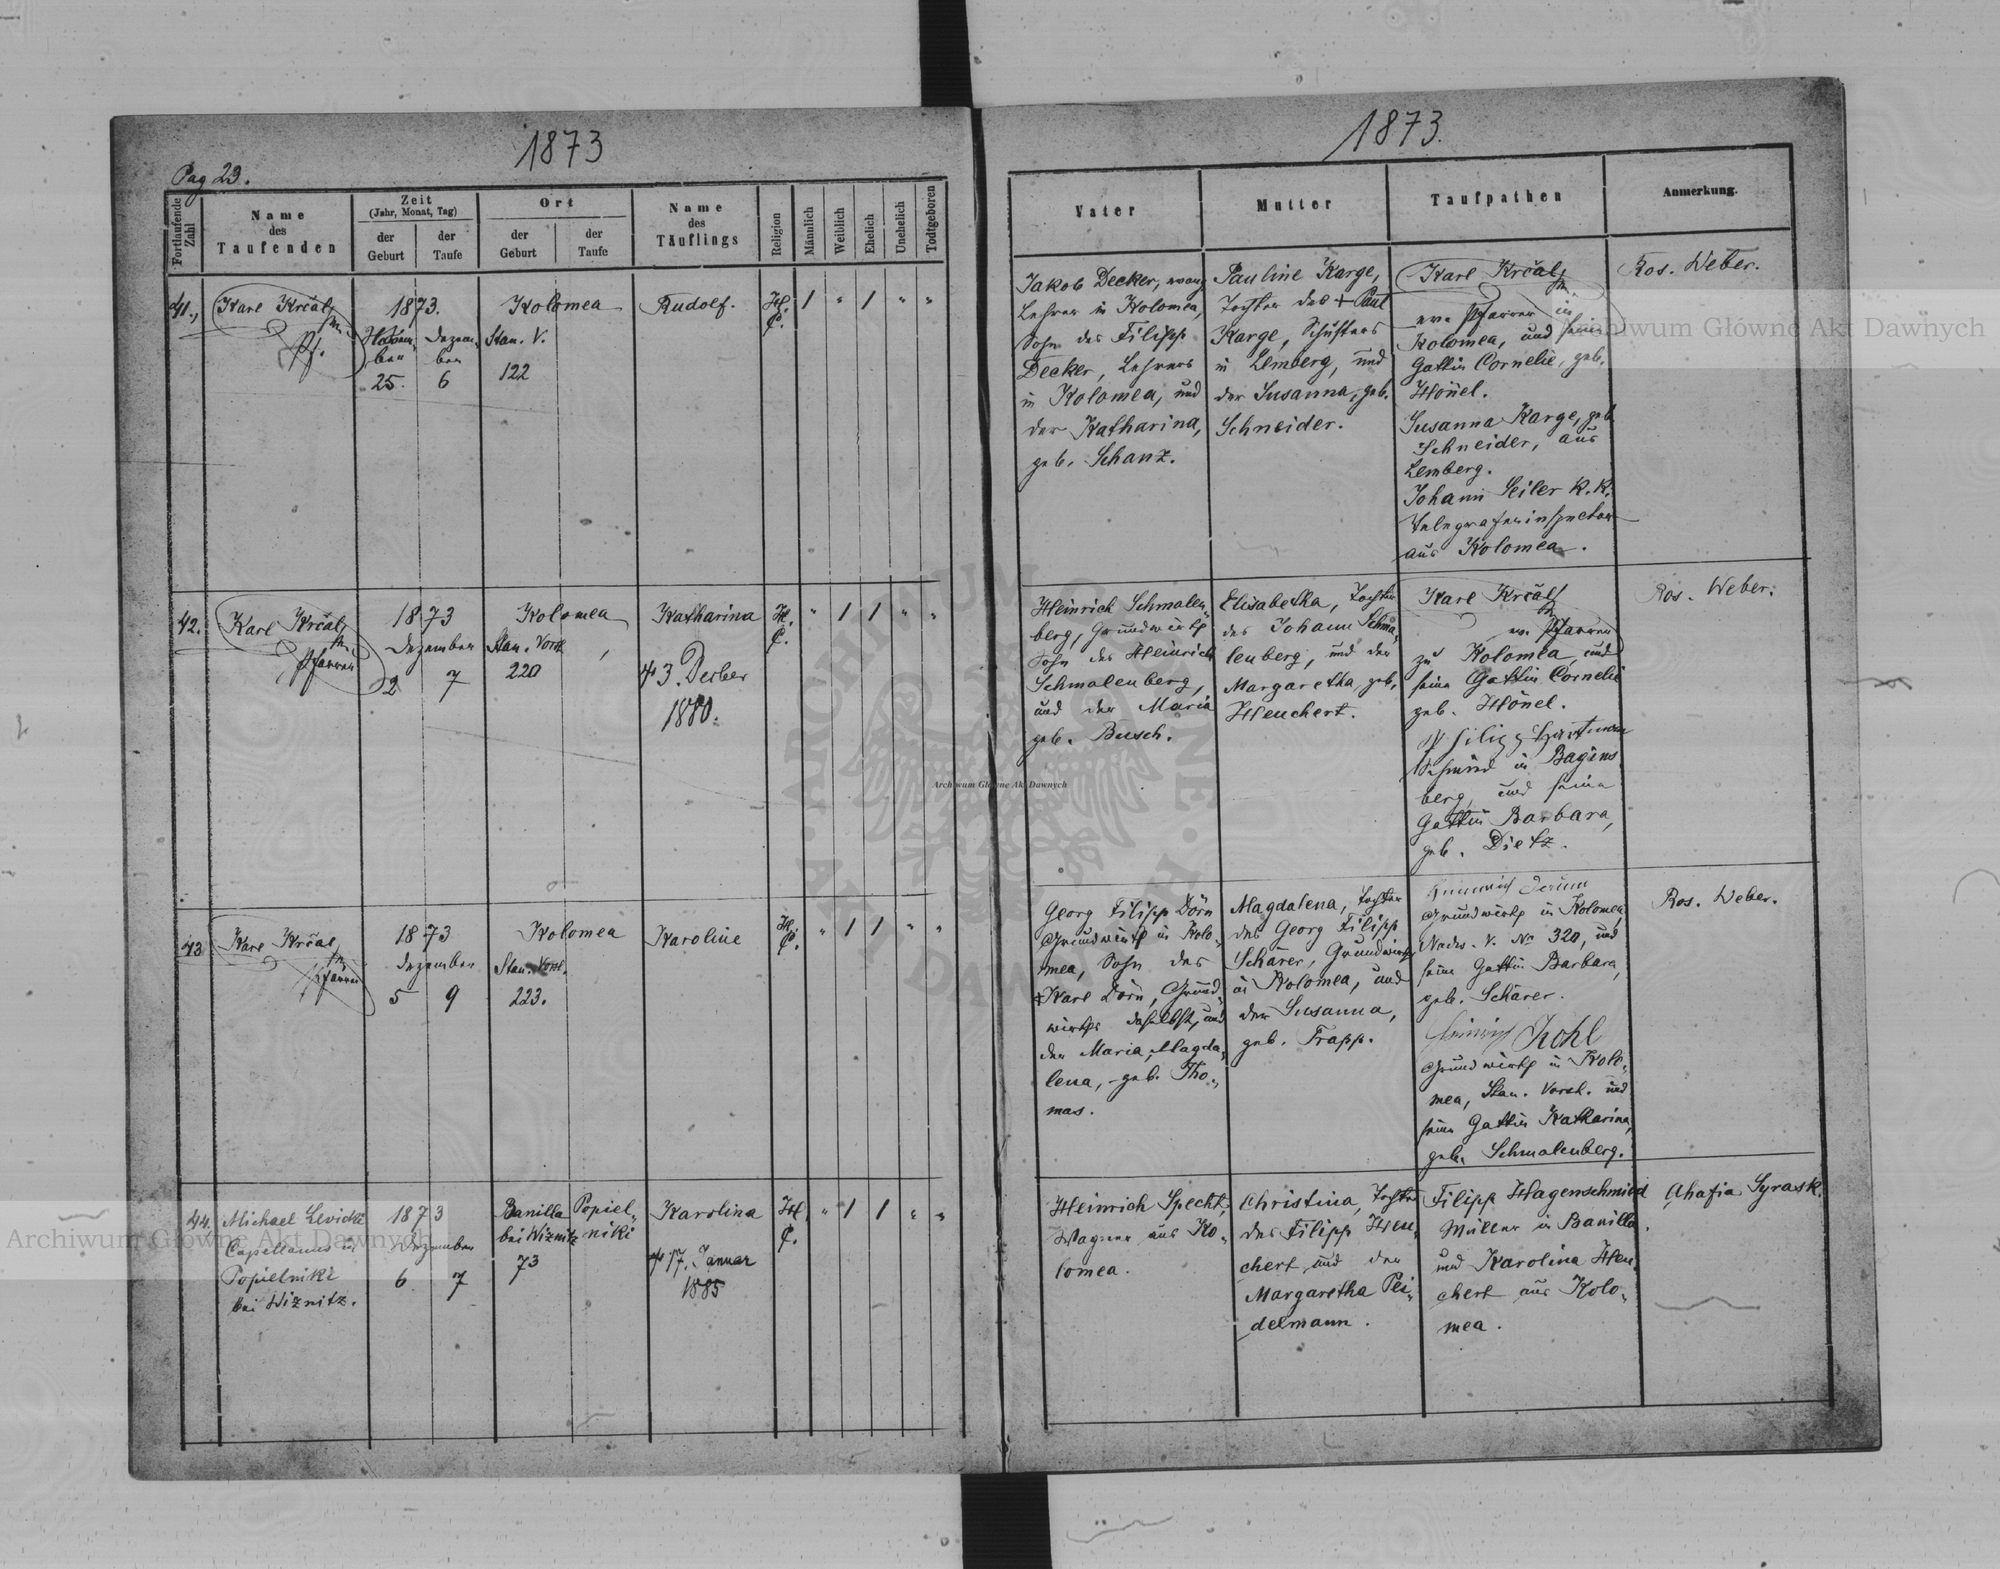 1873
Pag 23.
Fortlaufende Zahl
Name des Taufenden
Zeit
(Jahr, Monat, Tag)
der Geburt
der Taufe
Ort
der Geburt
der Taufe
Name des Täuflings
Religion
Männlich
Weiblich
Ehelich
Unehelich
Todtgeboren
41.,
Karl Krčal
Pf.
1873.
Novem-
ber
25.
Dezem-
ber
6
Kolomea
Stan. V.
122
Rudolf.
H.
C.
42.
Karl Krčal
Pfarrer
1873
Dezember
2 7
Kolomea
Stan. Vorst
220
Katharina
† 3. Dezber
1880.
H.
C.
43
Karl Krčal
Pfarrer
1873
Dezember
5 9
Kolomea
Stan. Vorst.
223.
Karoline
H.
C.
44.
Michael Levicki
Capellanus in
Popielniki
bei Wiznitz.
1873
Dezember
6 7
Banilla
bei Wiznitz
73
Popiel-
niki
Karolina
† 17. Januar
1885
H.
C.
1873.
Vater
Mutter
Taufpathen
Anmerkung.
Jakob Decker, evang.
Lehrer in Kolomea,
Sohn des Filipp
Decker, Lehrers
in Kolomea, und
der Katharina,
geb. Schanz.
Pauline Karge,
Tochter des + Paul
Karge, Schusters
in Lemberg, und
der Susanna, geb.
Schneider.
Karl Krčal
ev. Pfarrer in
Kolomea, und seine
Gattin Cornelie, geb.
Hönel.
Susanna Karge, geb.
Schneider, aus
Lemberg.
Johann Seiler k. k.
Telegrafeninspector
aus Kolomea.
Ros. Weber.
Heinrich Schmalen-
berg, Grundwirth
Sohn des Heinrich
Schmalenberg,
und der Maria
geb. Busch.
Elisabetha, Tochter
des Johann Schma-
lenberg, und der
Margaretha, geb.
Heuchert.
Karl Krčal
ev. Pfarrer
zu Kolomea und
seine Gattin Cornelie
geb. Hönel.
Philipp Hartman
Schmied in Bagins
berg, und seine
Gattin Barbara,
geb. Dietz.
Ros. Weber.
Georg Filipp Dörn
Grundwirth in Kolo-
mea, Sohn des
+ Karl Dörn, Grund-
wirths daselbst, und
der Maria Magda-
lena, geb. Tho-
mas.
Magdalena, Tochter
des Georg Filipp
Schärer, Grundwirths
in Kolomea, und
der Susanna,
geb. Trapp.
Grundwirth in Kolomea
Nadw. V. Nr 320, und
seine Gattin Barbara,
geb. Schärer.
Heinrich Kohl
Grundwirth in Kolo-
mea, Stan. Vorst. und
seine Gattin Katharina,
geb. Schmalenberg.
Ros. Weber.
Heinrich Specht,
Wagner aus Ko-
lomea.
Christina, Tochter
des Filipp Heu-
chert, und der
Margaretha Pei-
delmann.
Filipp Hagenschmied
Müller in Banilla
und Karolina Heu-
chert aus Kolo-
mea.
Ahafia Syrask.
Archiwum Główne Akt Dawnych
Archiwum Główne Akt Dawnych
Archiwum Główne Akt Dawnych